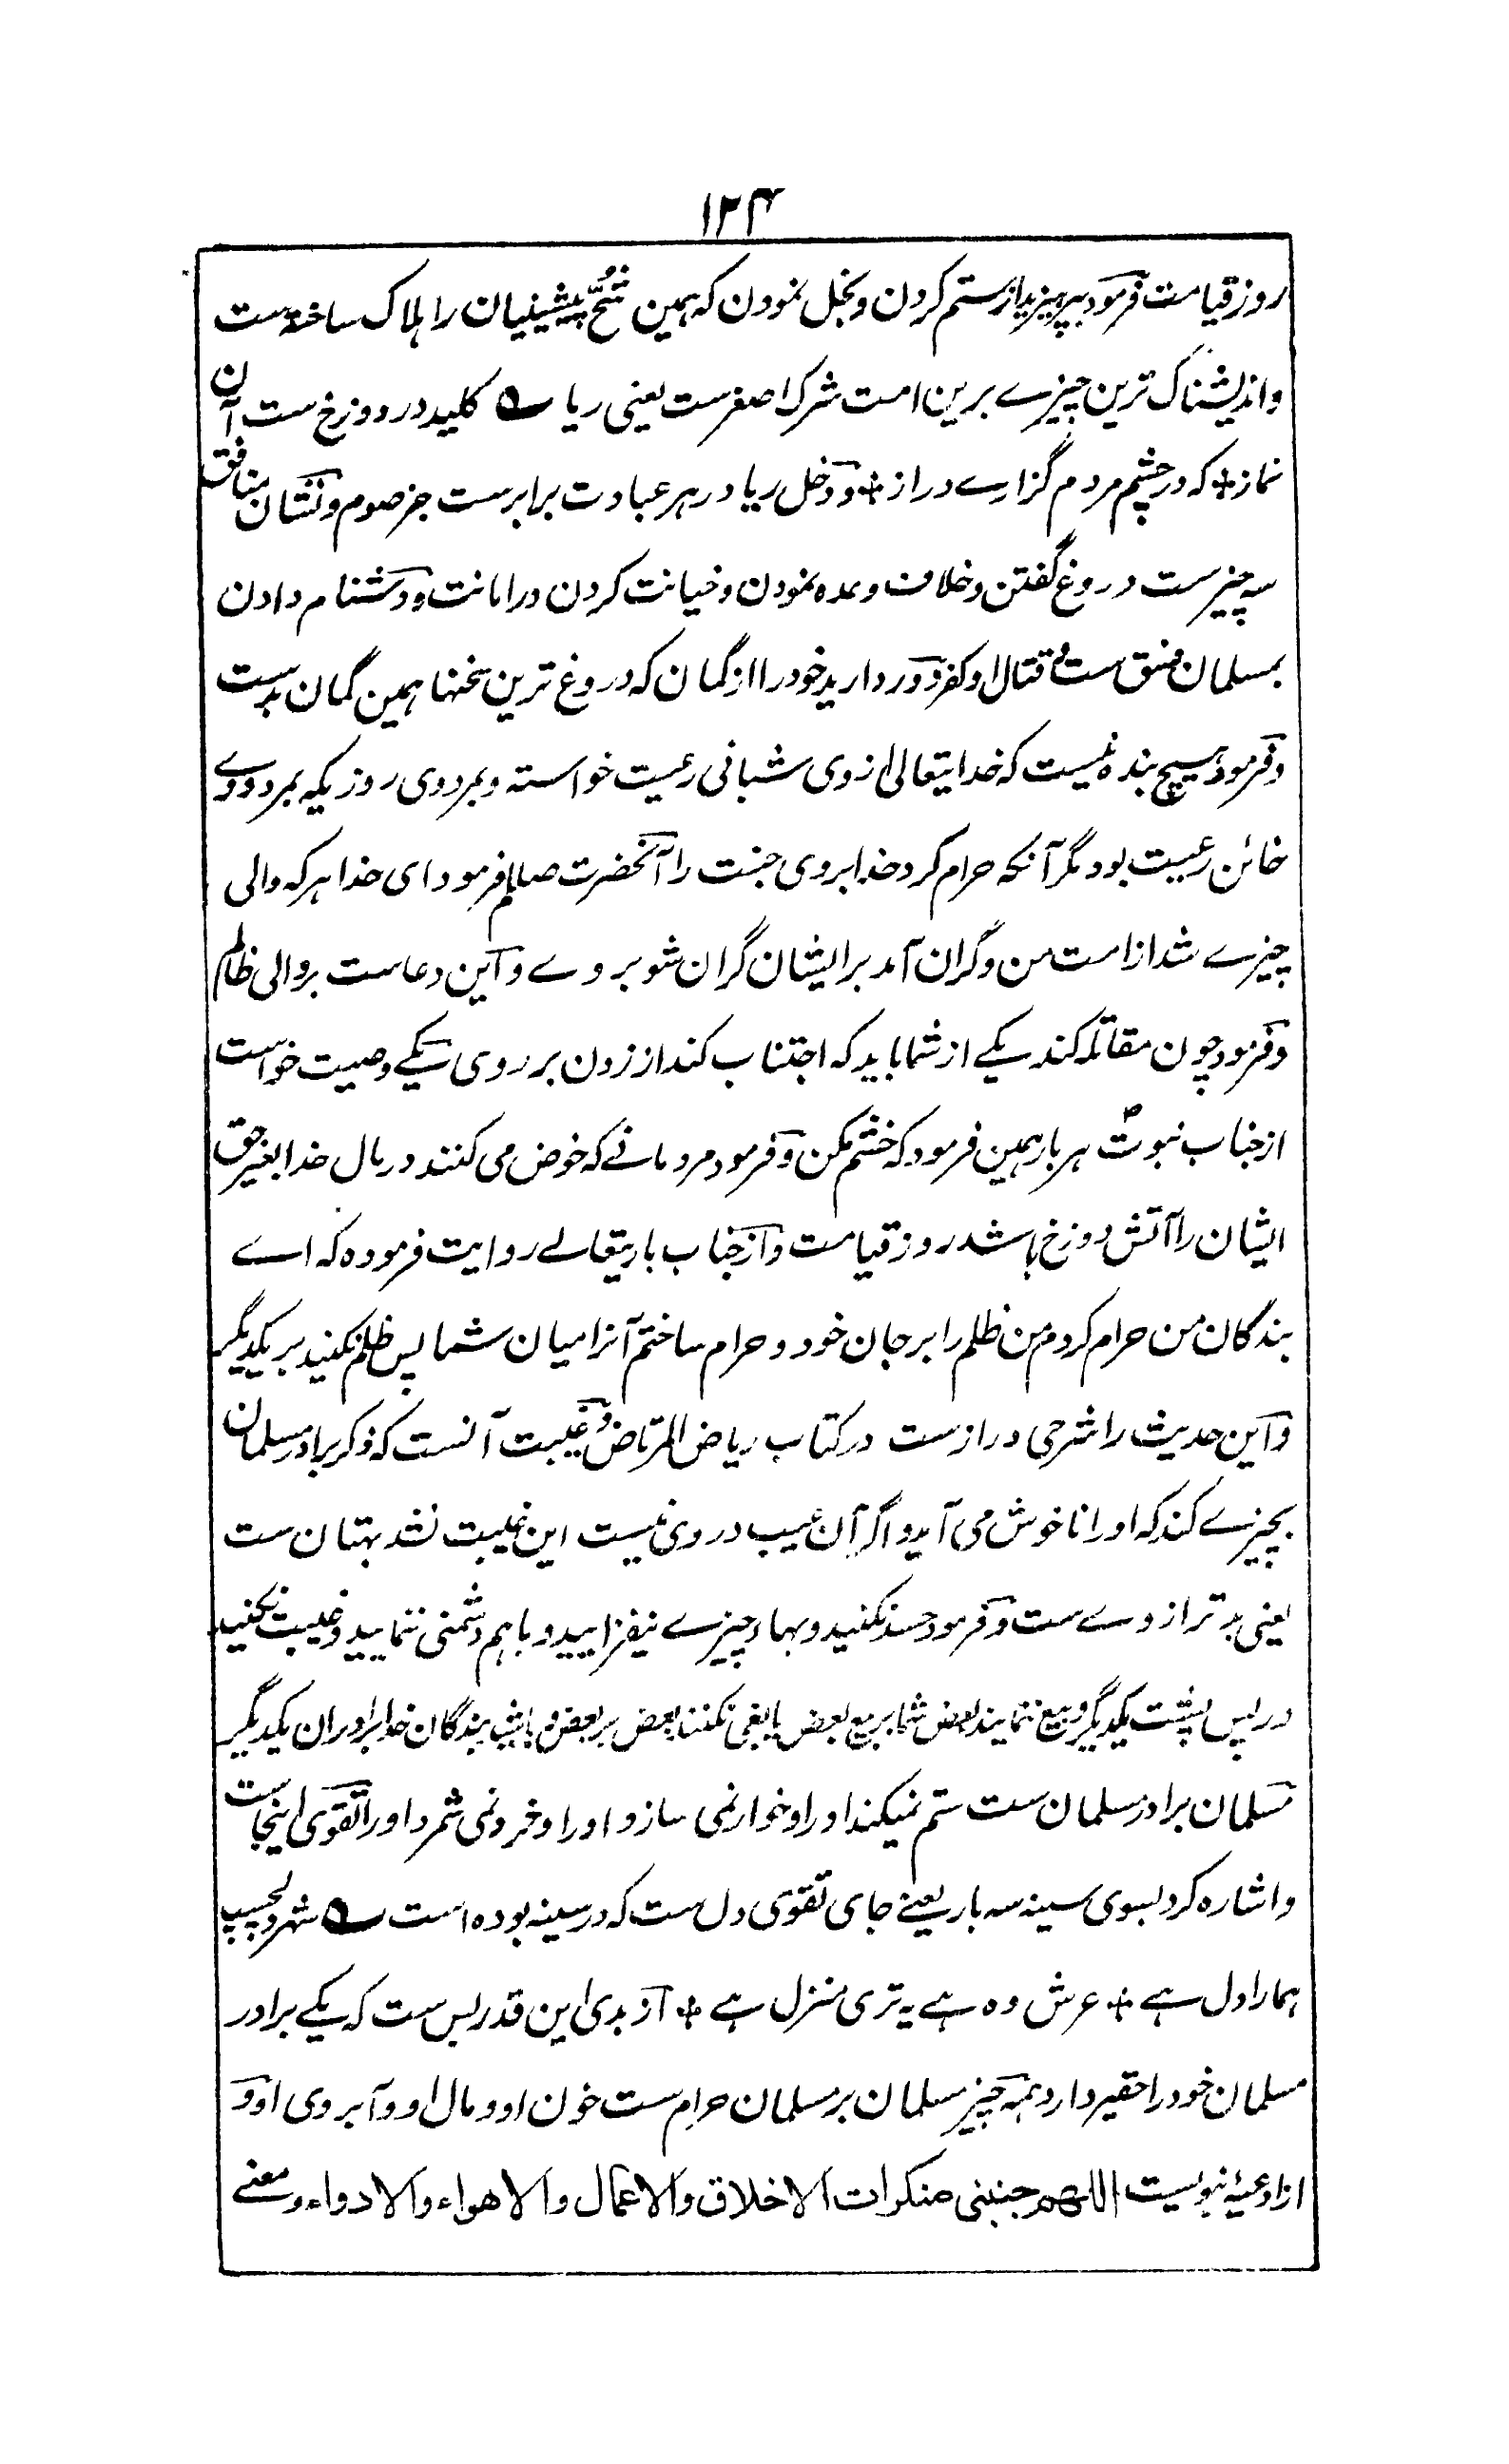 ۱۲۴
روز قیامت فرمود بپرہیزید از ستم کردن و بخل نمودن که ہمین شُحّ پیشینیان را ہلاک ساخته ست
و اندیشناک ترین چیزے برین امت شرک اصغرست یعنی ریا ے کلید در دوزخ ست آن
نماز ٭ که در چشم مردم گزارے دراز ٭ و دخل ریا در ہر عبادت برابرست جز صوم و نشان منافق
سه چیزست دروغ گفتن و خلاف وعده نمودن و خیانت کردن در امانت و دشنام دادن
بمسلمان فسق ست و قتال او کفر و دور دارید خود را از گمان که دروغ ترین سخنها ہمین گمان بدست
و فرمود ہیچ بنده نیست که خدایتعالی از وی شبانی رعیت خواسته و بمرد وی روزیکه بمرد و وے
خائن رعیت بود مگر آنکه حرام کرد خدا بر وی جنت را آنحضرت صللم فرمود ای خدا ہر که والی
چیزے شد از امت من و گران آمد بر ایشان گران شو بر وے و این دعاست بر والی ظالم
و فرمود چون مقاتله کند یکے از شما باید که اجتناب کند از زدن بر روی یکے وصیت خواست
از جناب نبوت ؐ ہر بار ہمین فرمود که خشم مکن و فرمود مردمانے که خوض می کنند در مال خدا بغیر حق
ایشان را آتش دوزخ باشد روز قیامت و از جناب باریتعالے روایت فرموده که اے
بندگان من حرام کردم من ظلم را بر جان خود و حرام ساختم آنرا میان شما پس ظلم نکنید بر یکدیگر
و این حدیث را شرحی درازست در کتاب ریاض المرتاض و غیبت آنست که ذکر برادر مسلمان
بچیزے کند که او را ناخوش می آید و اگر آن عیب در وی نیست این غیبت نشد بہتان ست
یعنی بدتر از وے ست و فرمود حسد نکنید و بہاء چیزے نیفزایید و باہم دشمنی ننمایید و غیبت نکنید
در پس پشت یکدیگر و بیع ننمایند بعض شما بر بیع بعض یا بغی نکنند بعض بر بعض و باشید بندگان خدا برادران یکدیگر
مسلمان برادر مسلمان ست ستم نمیکند او را و خوار نمی سازد او را و خرد نمی شمرد او را تقوی اینجاست
و اشاره کرد بسوی سینه سه بار یعنے جای تقوی دل ست که در سینه بوده است ے شہر دلچسپ
ہمارا دل ہے ٭ عرش وہ ہے یہ تری منزل ہے ٭ از بدی این قدر بس ست که یکے برادر
مسلمان خود را حقیر دارد ہمه چیز مسلمان بر مسلمان حرام ست خون او و مال او و آبروی او و
از ادعیۂ نبویست اللهم جنبنی منکرات الاخلاق والاعمال والاهواء والادواء و معنے